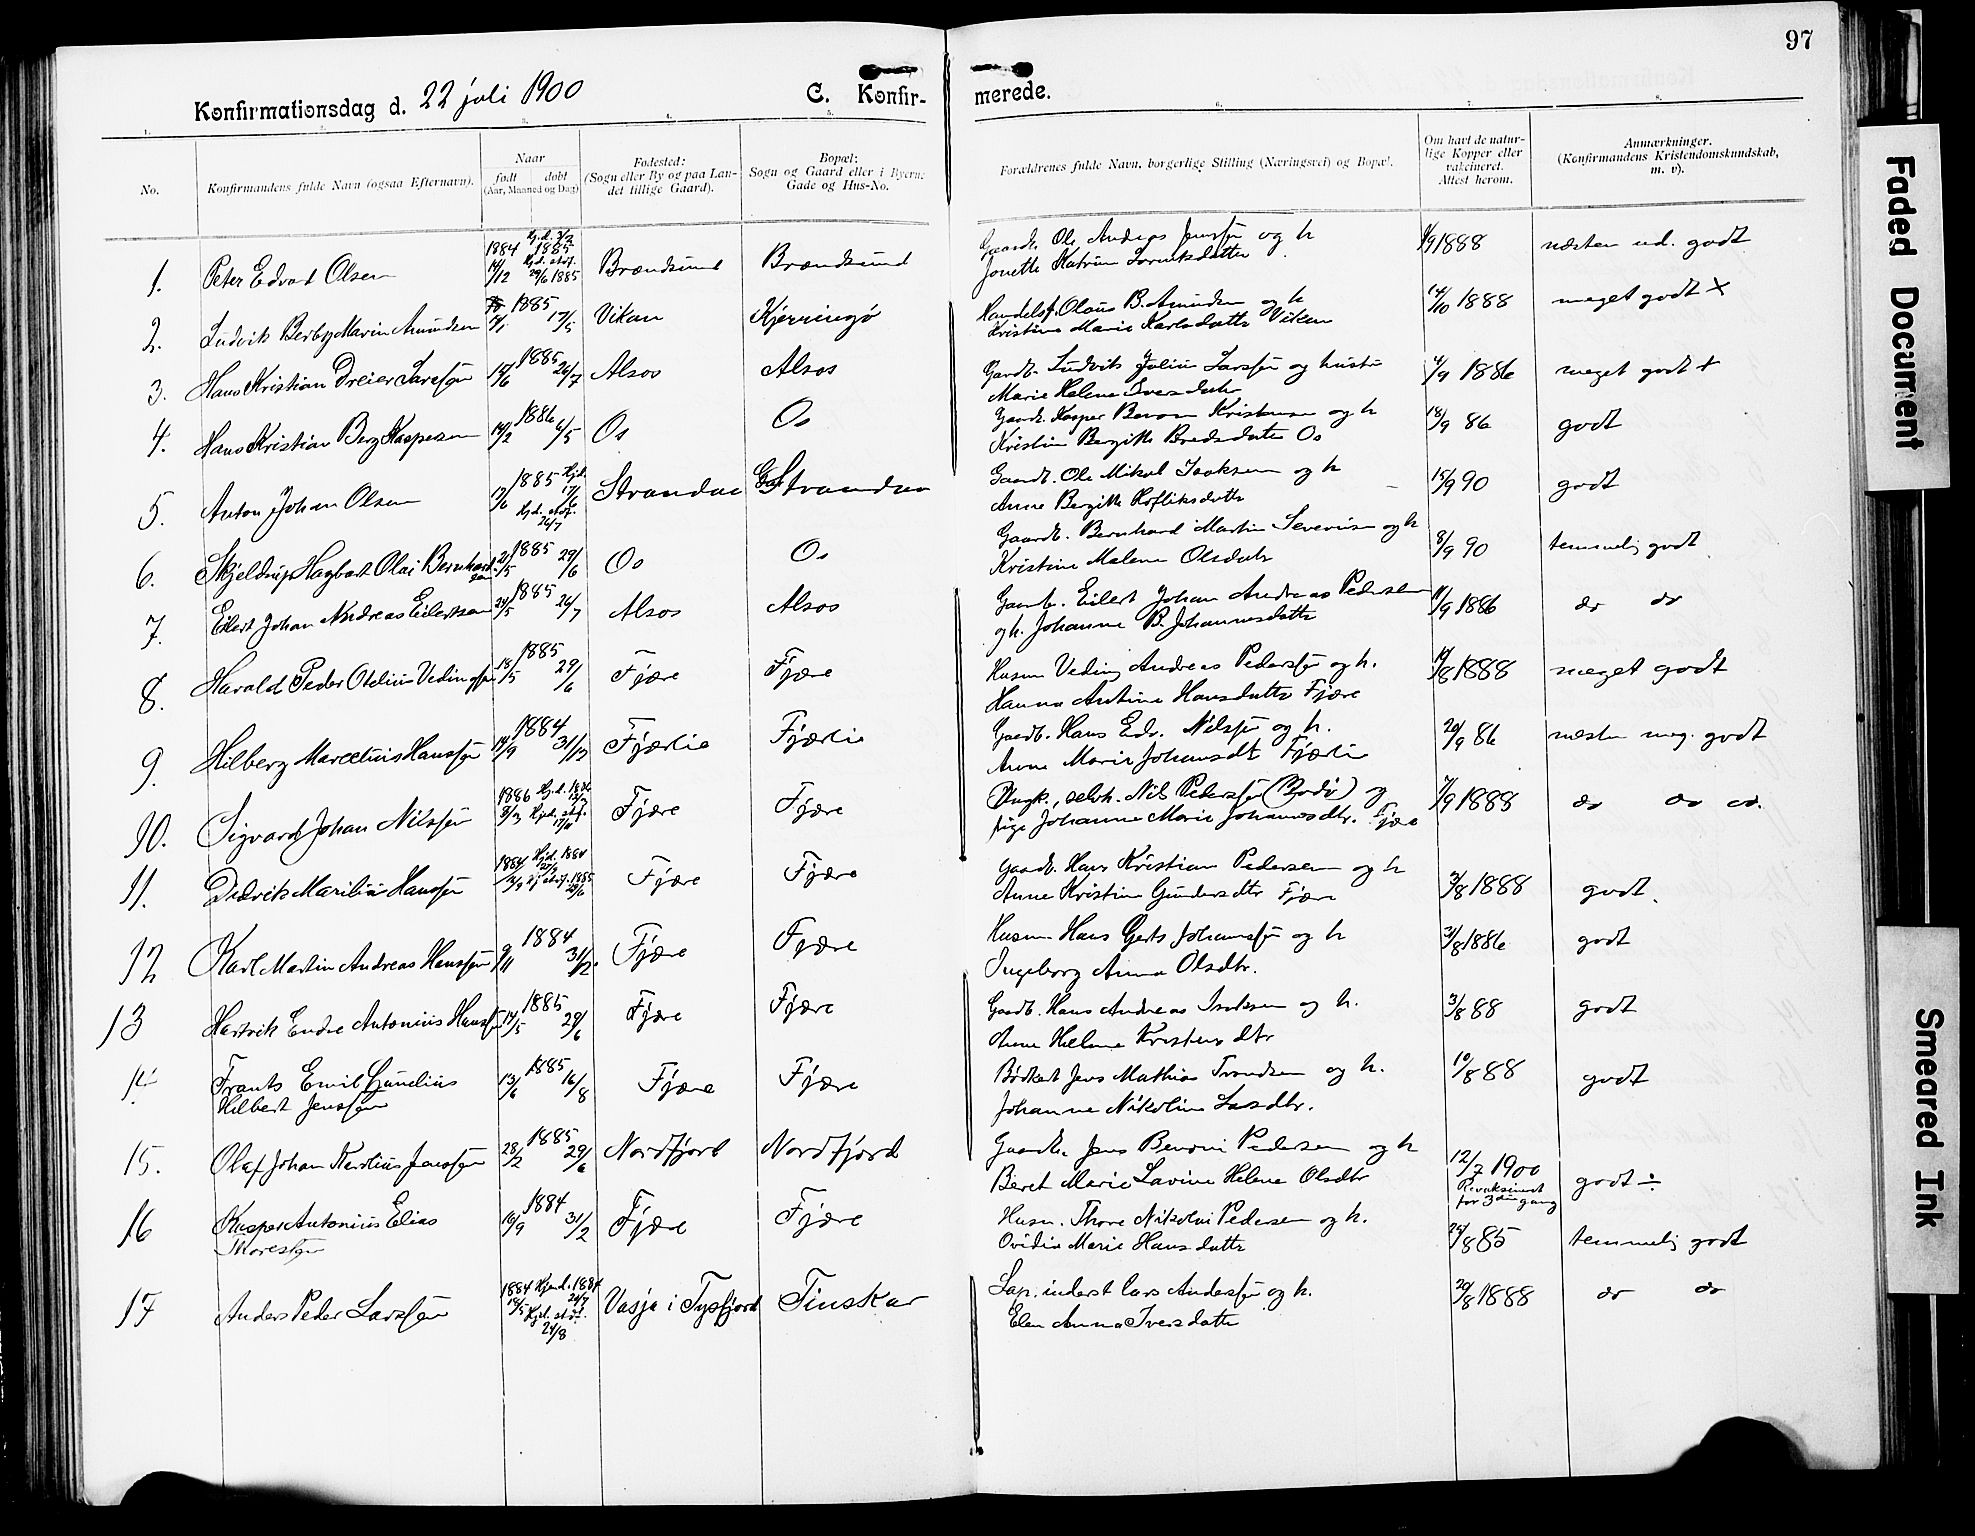 97
Konfirmationsdag d. 22 juli 1900
C. Konfir-
merede.
1. 2. 3. 4. 5. 6. 7. 8.
No.
Konfirmandens fulde Navn (ogsaa Efternavn).
Naar
født døbt
(Aar, Maaned og Dag)
Fødested:
(Sogn eller By og paa Lan-
det tillige Gaard).
Bopæl:
Sogn og Gaard eller i Byerne
Gade og Hus-No.
Forældrenes fulde Navn, borgerlige Stilling (Næringsvei) og Bopæl.
Om havt de natur-
lige Kopper eller
vakcineret.
Attest herom.
Anmærkninger.
(Konfirmandens Kristendomskundskab,
m. v).
1. Peter Edvard Olsen
1884 14/12 1885 29/6 1885
Brændsund Brændsund
Gaardb. Ole Andreas Jenssen og h
1888 næsten ud. godt
2. Ludvik Berby Marin Amundsen
1885 17/5
Vikan Kjerringø
Handelsf. Olaus B. Amundsen og h
Kristine Marie Karlsdatter Viken
14/10 1888 meget godt ×
3. Hans Kristian Dreier Larssen
14/6 1885 26/7
Alsos Alsos
Gardb. Ludvik Julius Larssen og hustru
Marie Helene Iversdatr
4/9 1886 meget godt +
4. Hans Kristian Berg Kaspersen
14/2 1886 6/5
Os Os
Gaardb. Kasper Benoni Kristensen og h
Kristine Bergitte Bredesdatter Os
18/9 86 godt
5. Anton Johan Olsen
17/6 1885 Hjd. 17/6
Hjd. stdf. 26/7
Strandaa Strandaa
Gaardb. Ole Mikal Isaksen og h
Anne Bergitte
15/9 90 godt
6. Skjeldrup Hagbart Olai Bernhard-
sen
21/5 1885 29/6
Os Os
Gaardb. Bernhard Martin Severin og h
Kristine Malene Olsdatr
8/9 90 temmelig godt
7. Eilert Johan Andreas Eilertsen
24/5 1885 26/7
Alsos Alsos
Gaardb. Eilert Johan Andreas Pedersen
og h. Johanne B. Johannesdatter
11/9 1886 do do
8. Harald Peder Otelius Vedingssen
18/5 1885 29/6
Fjære Fjære
Husm Veding Andreas Pederssen og h.
Hanna Antine Hansdatter Fjære
14/8 1888 meget godt
9. Hilberg Marcelius Hanssen
14/9 1884 31/12
Fjærlie Fjærlie
Gardb. Hans Edv. Nilssen og h.
Anne Marie Johansdt Fjærlie
20/9 86 næsten meg. godt
10. Sigvard Johan Nilssen
1886
Fjære Fjære
Ungk., selvh. Nils Pederssen (Bodø) og
pige Johanne Marie Johannesdtr. Fjære
7/9 1888 do do do.
11. Didrik Marilius Hanssen
1884 Hjd. 1884
1885
Fjære Fjære
Gaardb. Hans Kristian Pedersen og h
Anne Kristine Gundersdtr Fjære
3/8 1888 godt.
12 Karl Martin Andreas Hanssen
9/11 1884 31/12.
Fjære Fjære
Husm. Hans Gerts Johanssen og h
Ingeborg Anna Olsdtr.
3/8 1886 godt
13 Hartvik Endre Antonius Hanssen
14/5 1885 29/6
Fjære Fjære
Gaardb. Hans Andreas Isaksen og h.
Anne Helene Kristensdtr
3/8 88 godt
14 Frants Emil Gundius
Hilbert Jenssen
13/6 1885 16/8
Fjære Fjære
Bødker Jens Mathias Trondsen og h.
Johanne Nikoline Larsdtr.
10/8 88 godt
15. Olaf Johan Nerdius Jenssen
28/2 1885 29/6
Nordfjord Nordfjord
Gaardb. Jens Benoni Pedersen og h
Beret Marie Lavine Helene Olsdtr
12/7 1900
Revaksineret
for 3die gang
godt ÷
16 Kasper Antonius Elias
Thoressen
10/9 1884 31/12
Fjære Fjære
Husm. Thore Nikolai Pedersen og h.
Ovidia Marie Hansdatter
24/8 85 temmelig godt
17 Anders Peder Larssen
1884 Hjemd. 1884
Hjd. stdf.
24/8
Vasja i Tysfjord Tinskar
Lap. inderst Lars Anderssen og h.
Elen Anna Iversdatter
20/8 1888 do do
Faded Document
Smeared Ink